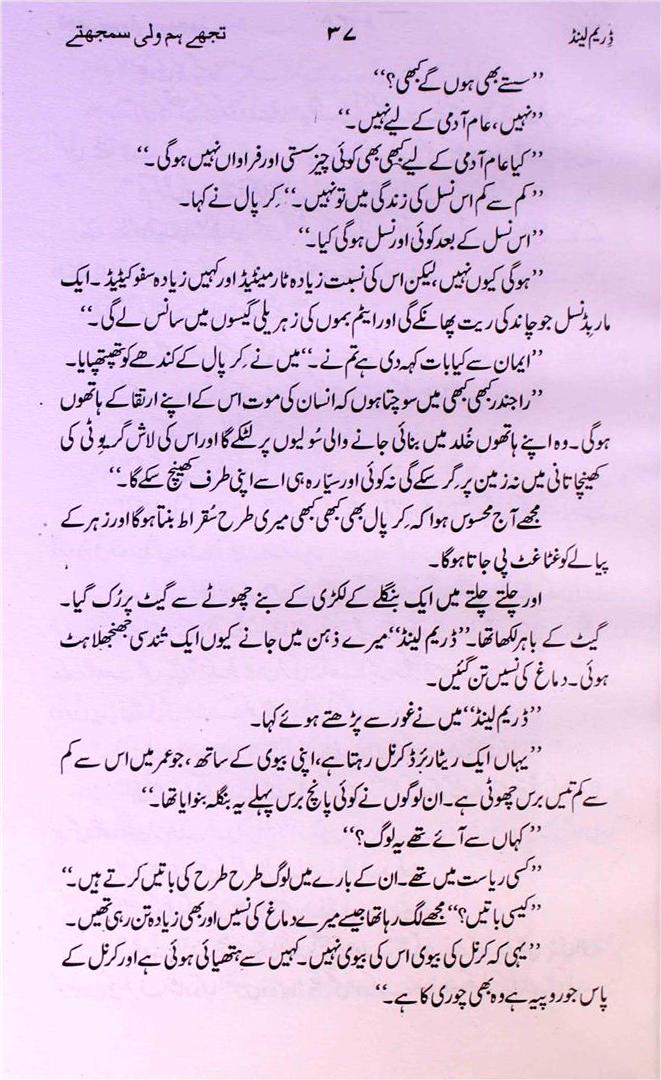 ڈریم لینڈ ۳۷ تجھے ہم ولی سمجھتے
’’سستے بھی ہوں گے کبھی؟‘‘
’’نہیں، عام آدمی کے لیے نہیں۔‘‘
’’کیا عام آدمی کے لیے کبھی بھی کوئی چیز سستی اور فراواں نہیں ہوگی۔‘‘
’’کم سے کم اس نسل کی زندگی میں تو نہیں۔‘‘ کِرپال نے کہا۔
’’اس نسل کے بعد کوئی اور نسل ہوگی کیا۔‘‘
’’ہوگی کیوں نہیں، لیکن اس کی نسبت زیادہ ٹارمینٹیڈ اور کہیں زیادہ سفوکیٹیڈ۔ ایک
ماربِڈ نسل جو چاند کی ریت پھانکے گی اور ایٹم بموں کی زہریلی گیسوں میں سانس لے گی۔‘‘
’’ایمان سے کیا بات کہہ دی ہے تم نے۔‘‘ میں نے کِرپال کے کندھے کو تھپتھپایا۔
’’راجندر کبھی کبھی میں سوچتا ہوں کہ انسان کی موت اس کے اپنے ارتقا کے ہاتھوں
ہوگی۔ وہ اپنے ہاتھوں خُلد میں بنائی جانے والی سُولیوں پر لٹکے گا اور اس کی لاش گریوِٹی کی
کھینچا تانی میں نہ زمین پر گِر سکے گی نہ کوئی اور سیّارہ ہی اسے اپنی طرف کھینچ سکے گا۔‘‘
مجھے آج محسوس ہوا کہ کِرپال بھی کبھی کبھی میری طرح سُقراط بنتا ہوگا اور زہر کے
پیالے کو غٹاغٹ پی جاتا ہوگا۔
اور چلتے چلتے میں ایک بنگلے کے لکڑی کے بنے چھوٹے سے گیٹ پر رُک گیا۔
گیٹ کے باہر لکھا تھا۔ ’’ڈریم لینڈ‘‘ میرے ذہن میں جانے کیوں ایک تُندسی جھنجھلاہٹ
ہوئی۔ دماغ کی نسیں تن گئیں۔
’’ڈریم لینڈ‘‘ میں نے غور سے پڑھتے ہوئے کہا۔
’’یہاں ایک ریٹائرڈ کرنل رہتا ہے، اپنی بیوی کے ساتھ، جو عمر میں اس سے کم
سے کم تیس برس چھوٹی ہے۔ ان لوگوں نے کوئی پانچ برس پہلے یہ بنگلہ بنوایا تھا۔‘‘
’’کہاں سے آئے تھے یہ لوگ؟‘‘
’’کسی ریاست میں تھے۔ ان کے بارے میں لوگ طرح طرح کی باتیں کرتے ہیں۔‘‘
’’کیسی باتیں؟‘‘ مجھے لگ رہا تھا جیسے میرے دماغ کی نسیں اور بھی زیادہ تن رہی تھیں۔
’’یہی کہ کرنل کی بیوی اس کی بیوی نہیں۔ کہیں سے ہتھیائی ہوئی ہے اور کرنل کے
پاس جو روپیہ ہے وہ بھی چوری کا ہے۔‘‘